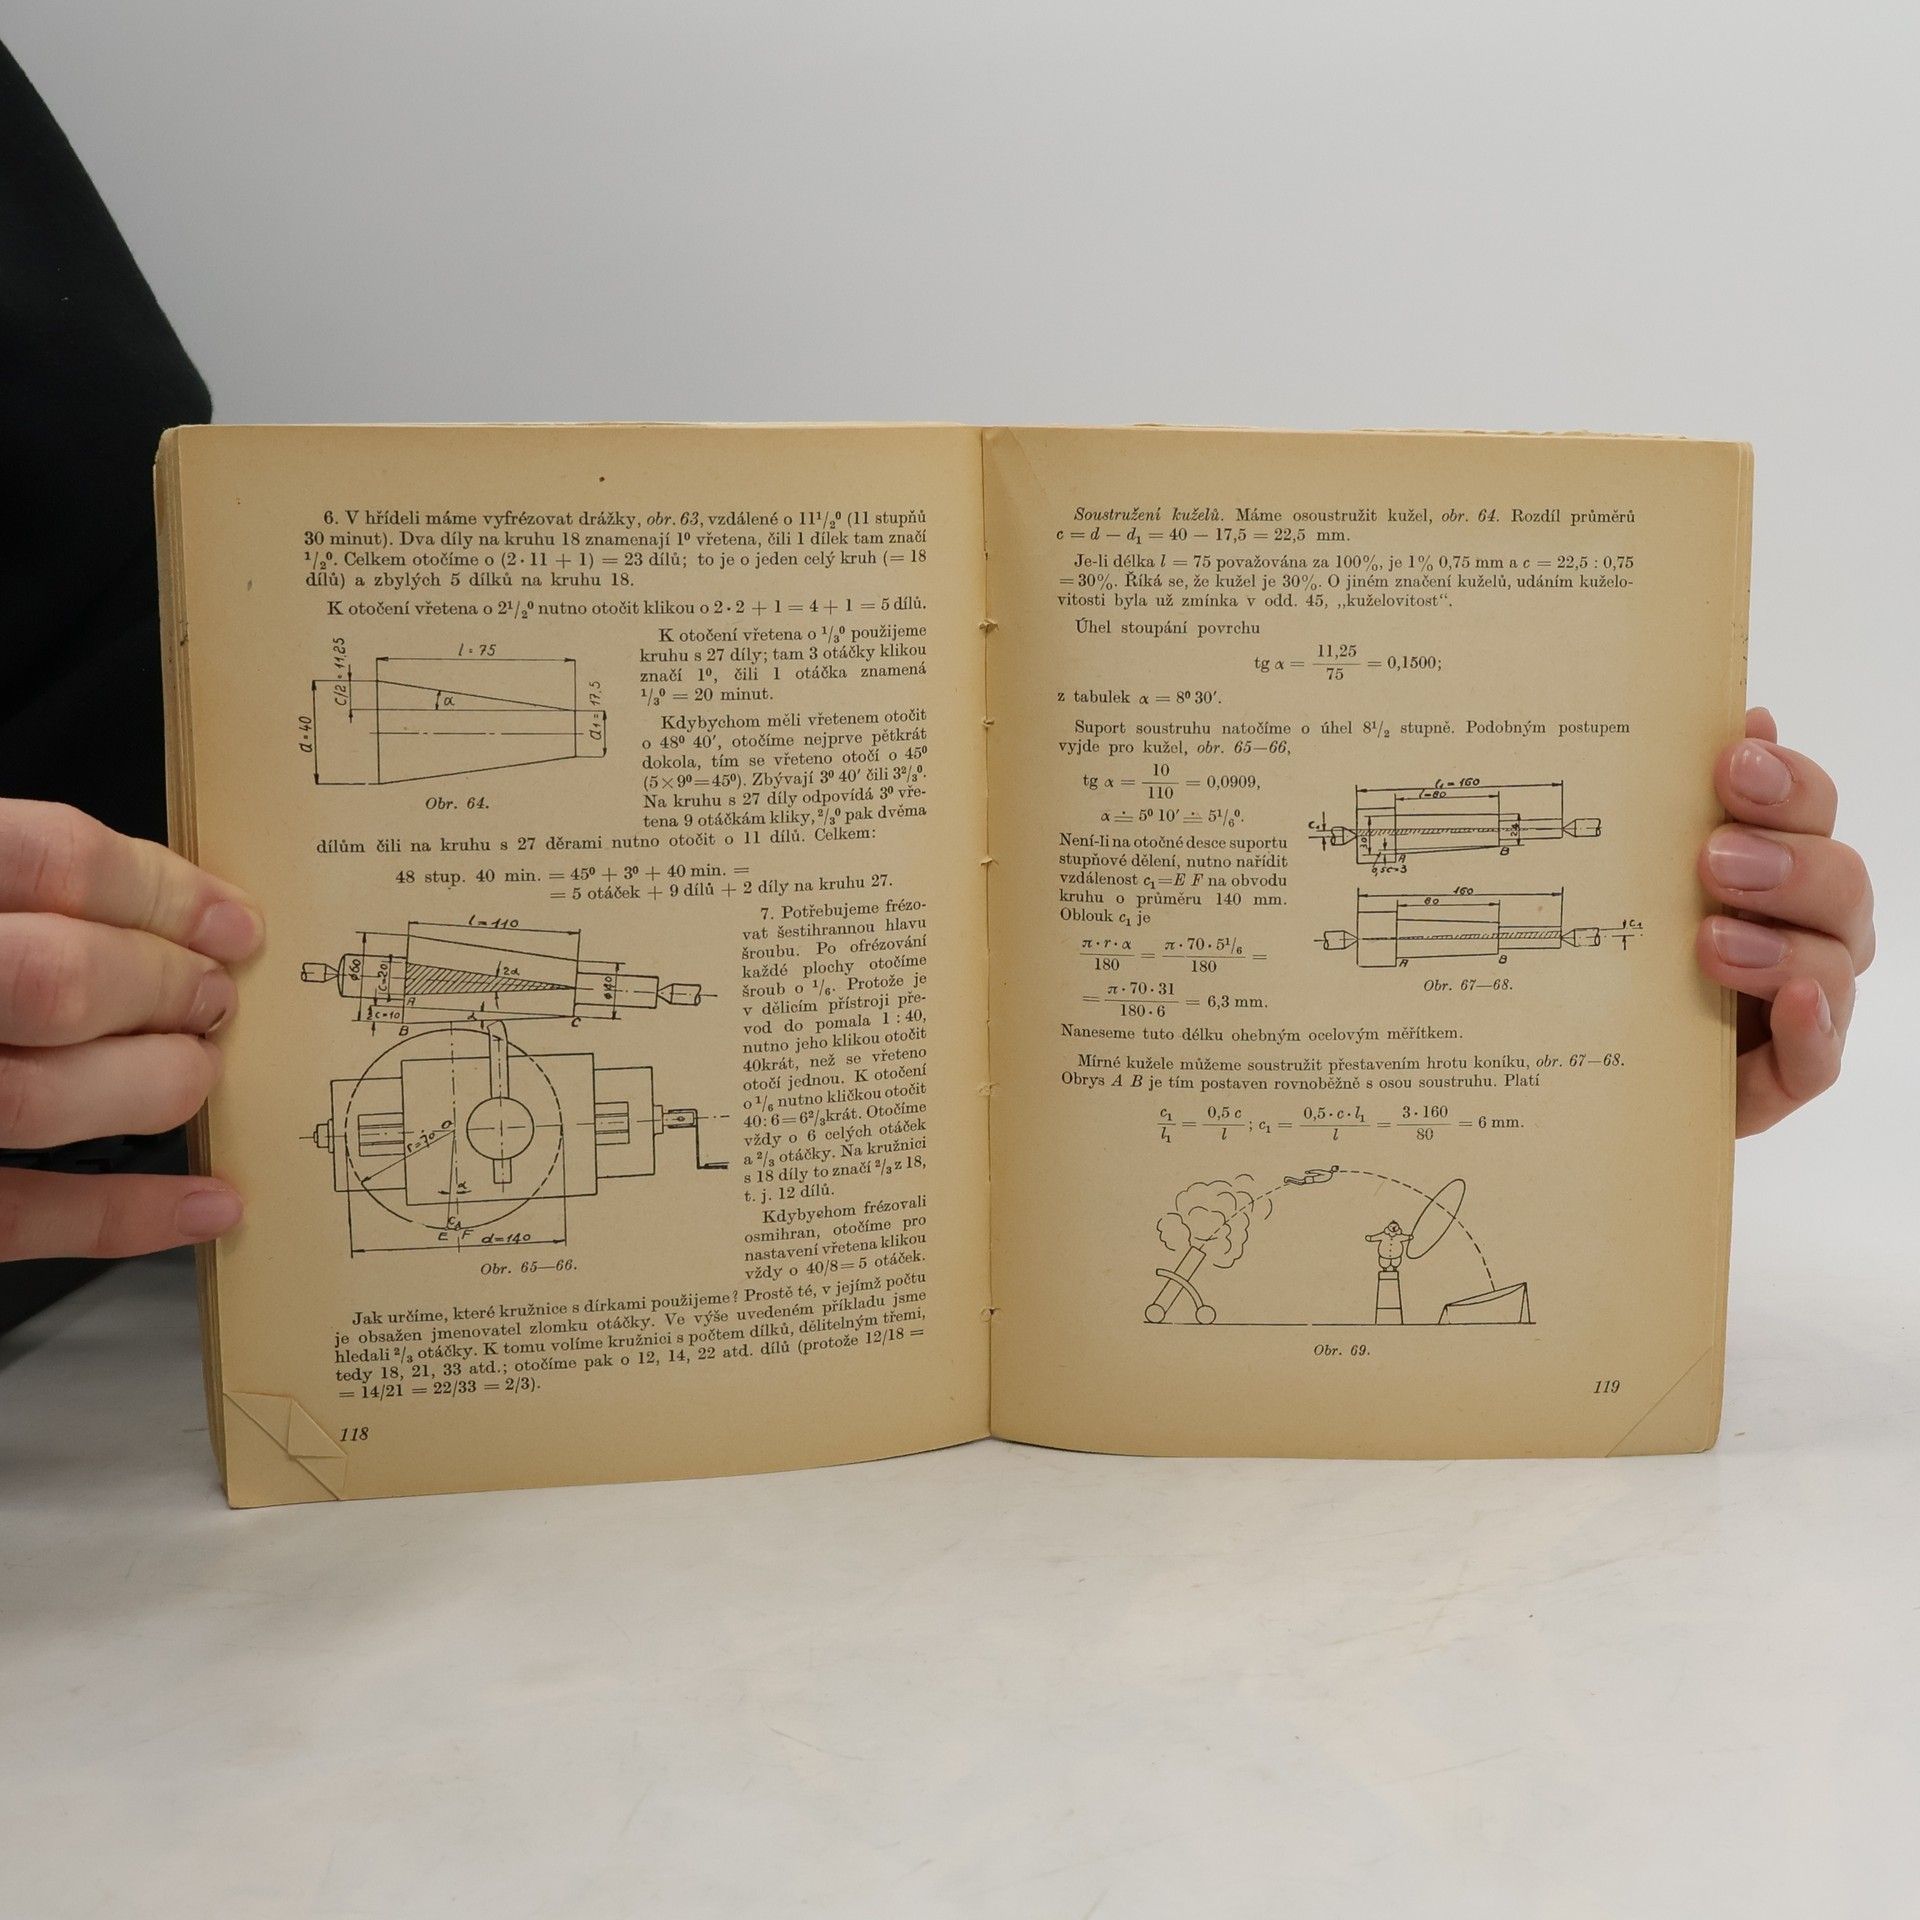 6. V hřídeli máme vyfrézovat drážky, obr. 63, vzdálené o 11¹/₂⁰ (11 stupňů
30 minut). Dva díly na kruhu 18 znamenají 1⁰ vřetena, čili 1 dílek tam značí
¹/₂⁰. Celkem otočíme o (2 · 11 + 1) = 23 dílů; to je o jeden celý kruh (= 18
dílů) a zbylých 5 dílků na kruhu 18.
K otočení vřetena o 2¹/₂⁰ nutno otočit klikou o 2 · 2 + 1 = 4 + 1 = 5 dílů.
l = 75
c/2 = 11,25
d = 40
α
d₁ = 17,5
Obr. 64.
K otočení vřetena o ¹/₃⁰ použijeme
kruhu s 27 díly; tam 3 otáčky klikou
značí 1⁰, čili 1 otáčka znamená
¹/₃⁰ = 20 minut.
Kdybychom měli vřetenem otočit
o 48⁰ 40′, otočíme nejprve pětkrát
dokola, tím se vřeteno otočí o 45⁰
(5×9⁰=45⁰). Zbývají 3⁰ 40′ čili 3²/₃⁰.
Na kruhu s 27 díly odpovídá 3⁰ vře-
tena 9 otáčkám kliky, ²/₃⁰ pak dvěma
dílům čili na kruhu s 27 děrami nutno otočit o 11 dílů. Celkem:
48 stup. 40 min. = 45⁰ + 3⁰ + 40 min. =
= 5 otáček + 9 dílů + 2 díly na kruhu 27.
l=110
ø60
c=20
2α
ø40
A
½c=10
B
α
C
r=70
O
α
c₁
E F
d=140
Obr. 65—66.
7. Potřebujeme frézo-
vat šestihrannou hlavu
šroubu. Po ofrézování
každé plochy otočíme
šroub o ¹/₆. Protože je
v dělicím přístroji pře-
vod do pomala 1 : 40,
nutno jeho klikou otočit
40krát, než se vřeteno
otočí jednou. K otočení
o ¹/₆ nutno kličkou otočit
40 : 6 = 6²/₃krát. Otočíme
vždy o 6 celých otáček
a ²/₃ otáčky. Na kružnici
s 18 díly to značí ²/₃ z 18,
t. j. 12 dílů.
Kdybychom frézovali
osmihran, otočíme pro
nastavení vřetena klikou
vždy o 40/8 = 5 otáček.
Jak určíme, které kružnice s dírkami použijeme? Prostě té, v jejímž počtu
je obsažen jmenovatel zlomku otáčky. Ve výše uvedeném příkladu jsme
hledali ²/₃ otáčky. K tomu volíme kružnici s počtem dílků, dělitelným třemi,
tedy 18, 21, 33 atd.; otočíme pak o 12, 14, 22 atd. dílů (protože 12/18 =
= 14/21 = 22/33 = 2/3).
118
Soustružení kuželů. Máme osoustružit kužel, obr. 64. Rozdíl průměrů
c = d — d₁ = 40 — 17,5 = 22,5 mm.
Je-li délka l = 75 považována za 100%, je 1% 0,75 mm a c = 22,5 : 0,75
= 30%. Říká se, že kužel je 30%. O jiném značení kuželů, udáním kuželo-
vitosti byla už zmínka v odd. 45, „kuželovitost“.
Úhel stoupání povrchu
tg α = 11,25/75 = 0,1500;
z tabulek α = 8⁰ 30′.
Suport soustruhu natočíme o úhel 8¹/₂ stupně. Podobným postupem
vyjde pro kužel, obr. 65—66,
tg α = 10/110 = 0,0909,
α ≐ 5⁰ 10′ ≐ 5¹/₆⁰.
Není-li na otočné desce suportu
stupňové dělení, nutno nařídit
vzdálenost c₁=E F na obvodu
kruhu o průměru 140 mm.
Oblouk c₁ je
π·r·α/180 = π·70·5¹/₆/180 =
= π·70·31/180·6 = 6,3 mm.
l₁=160
l=80
c₁
30
24
A
B
0,5c=3
160
80
c₁
A
B
Obr. 67—68.
Naneseme tuto délku ohebným ocelovým měřítkem.
Mírné kužele můžeme soustružit přestavením hrotu koníku, obr. 67—68.
Obrys A B je tím postaven rovnoběžně s osou soustruhu. Platí
c₁/l₁ = 0,5 c/l ; c₁ = 0,5·c·l₁/l = 3·160/80 = 6 mm.
Obr. 69.
119